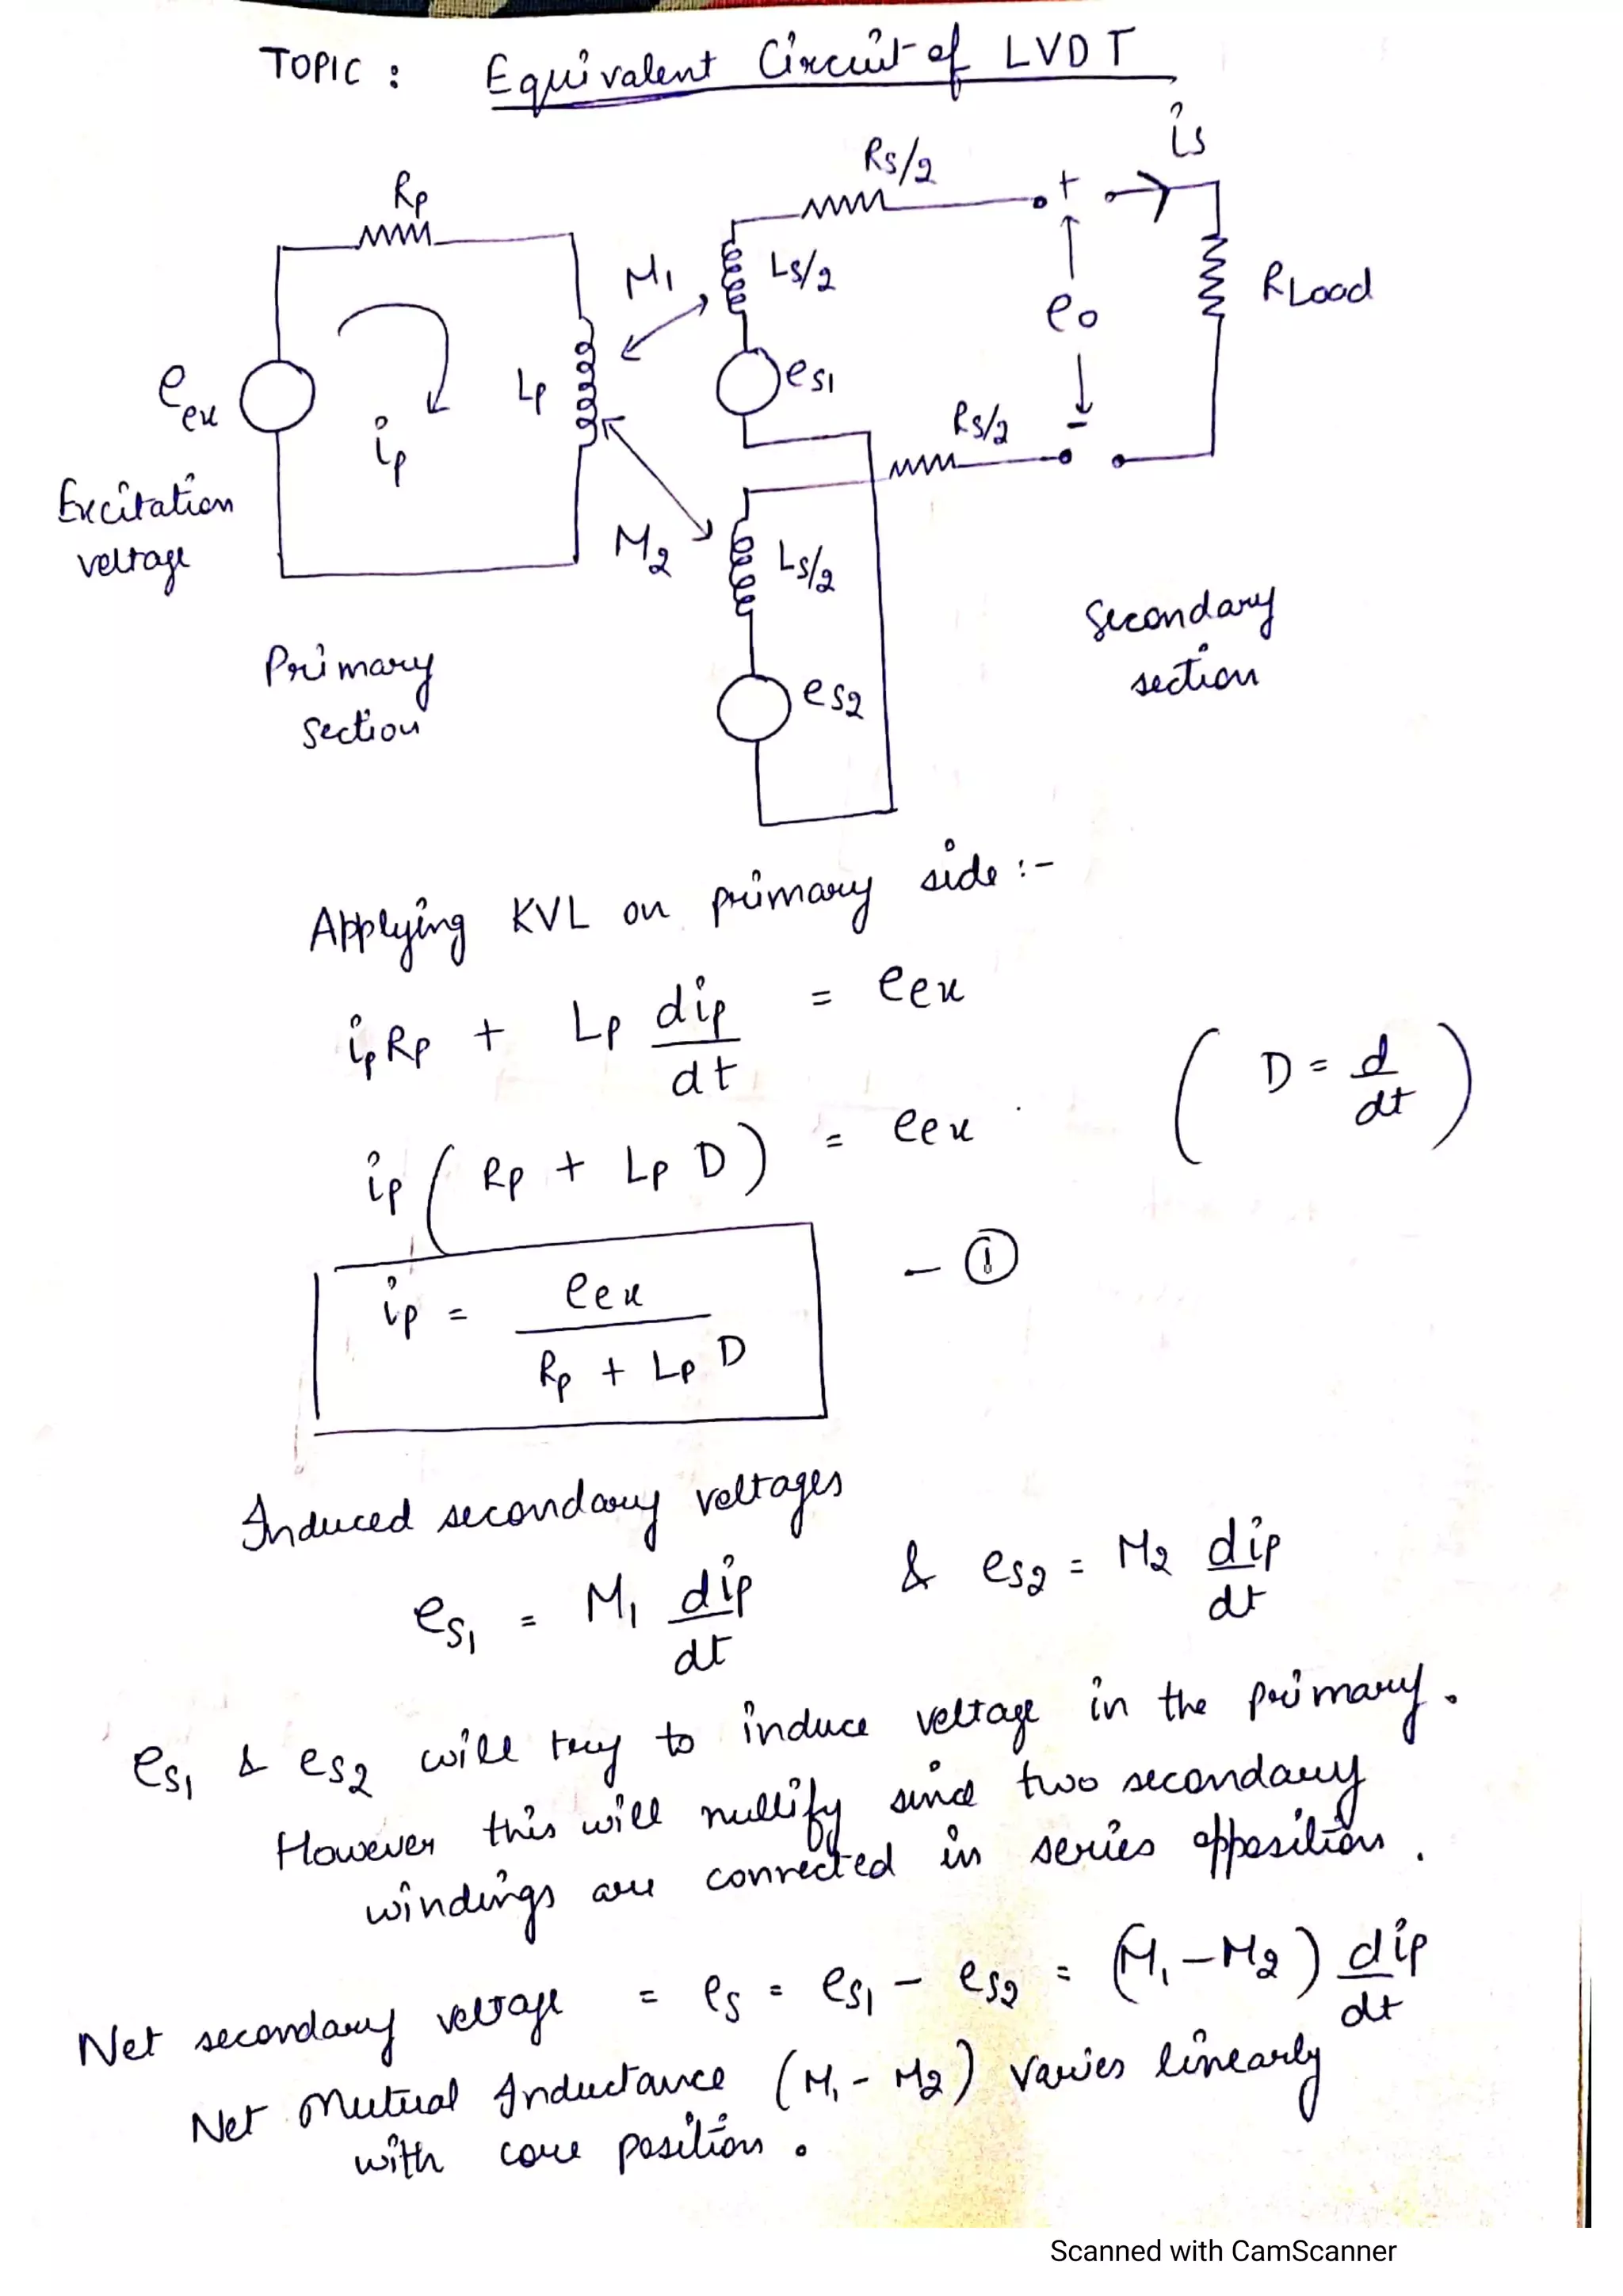 TOPIC : Equivalent Circuit of LVDT
is
Rs/2
Rp
+
M1
Ls/2
RLoad
eo
eex
Lp
es1
ip
Rs/2
-
Excitation
voltage
M2
Ls/2
Secondary
section
Primary
Section
es2
Applying KVL on primary side :-
ipRp + Lp dip/dt = eex
ip ( Rp + Lp D ) = eex ( D = d/dt )
ip = eex / Rp + Lp D - ①
Induced secondary voltages
es1 = M1 dip/dt & es2 = M2 dip/dt
es1 & es2 will try to induce voltage in the primary.
However this will nullify since two secondary
windings are connected in series opposition .
Net secondary voltage = es = es1 - es2 = (M1 - M2) dip/dt
Net Mutual Inductance (M1 - M2) varies linearly
with core position .
Scanned with CamScanner